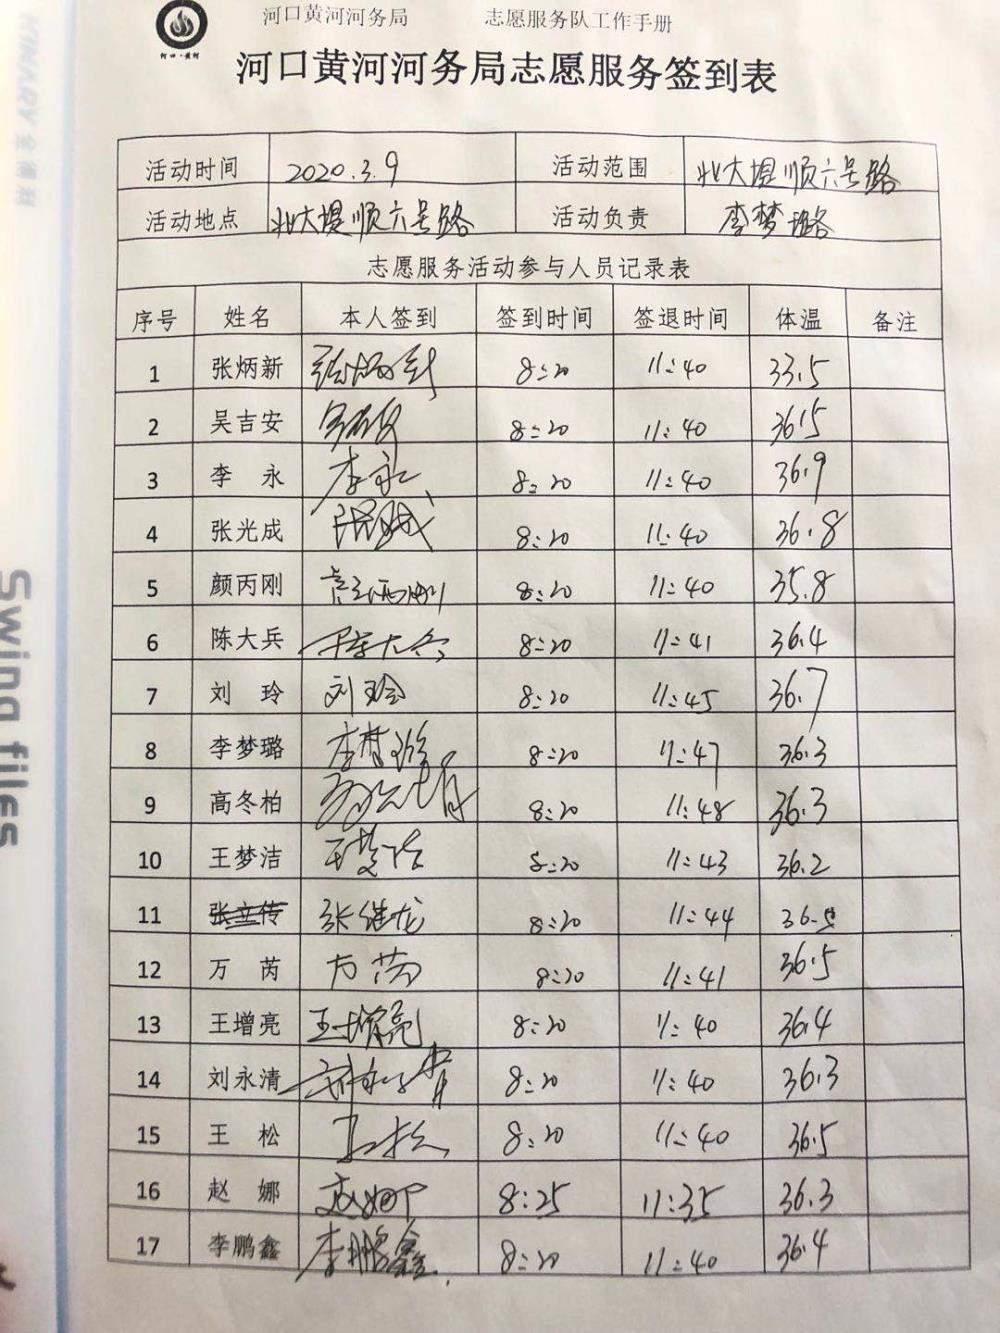 河口·黄河
河口黄河河务局 志愿服务队工作手册
河口黄河河务局志愿服务签到表
活动时间 2020.3.9 活动范围 北大堤顺六号路
活动地点 北大堤顺六号路 活动负责 李梦璐
志愿服务活动参与人员记录表
序号 姓名 本人签到 签到时间 签退时间 体温 备注
1 张炳新 张炳新 8:20 11:40 33.5
2 吴吉安 8:20 11:40 36.5
3 李永 李永 8:20 11:40 36.9
4 张光成 8:20 11:40 36.8
5 颜丙刚 颜丙刚 8:20 11:40 35.8
6 陈大兵 陈大兵 8:20 11:41 36.4
7 刘玲 刘玲 8:20 11:45 36.7
8 李梦璐 李梦璐 8:20 11:47 36.3
9 高冬柏 8:20 11:48 36.3
10 王梦洁 王梦洁 8:20 11:43 36.2
11 张立传 张继龙 8:20 11:44 36.5
12 万芮 万芮 8:20 11:41 36.5
13 王增亮 王增亮 8:20 11:40 36.4
14 刘永清 刘永清 8:20 11:40 36.3
15 王松 王松 8:20 11:40 36.5
16 赵娜 赵娜 8:25 11:35 36.3
17 李鹏鑫 李鹏鑫 8:20 11:40 36.4
Swing files